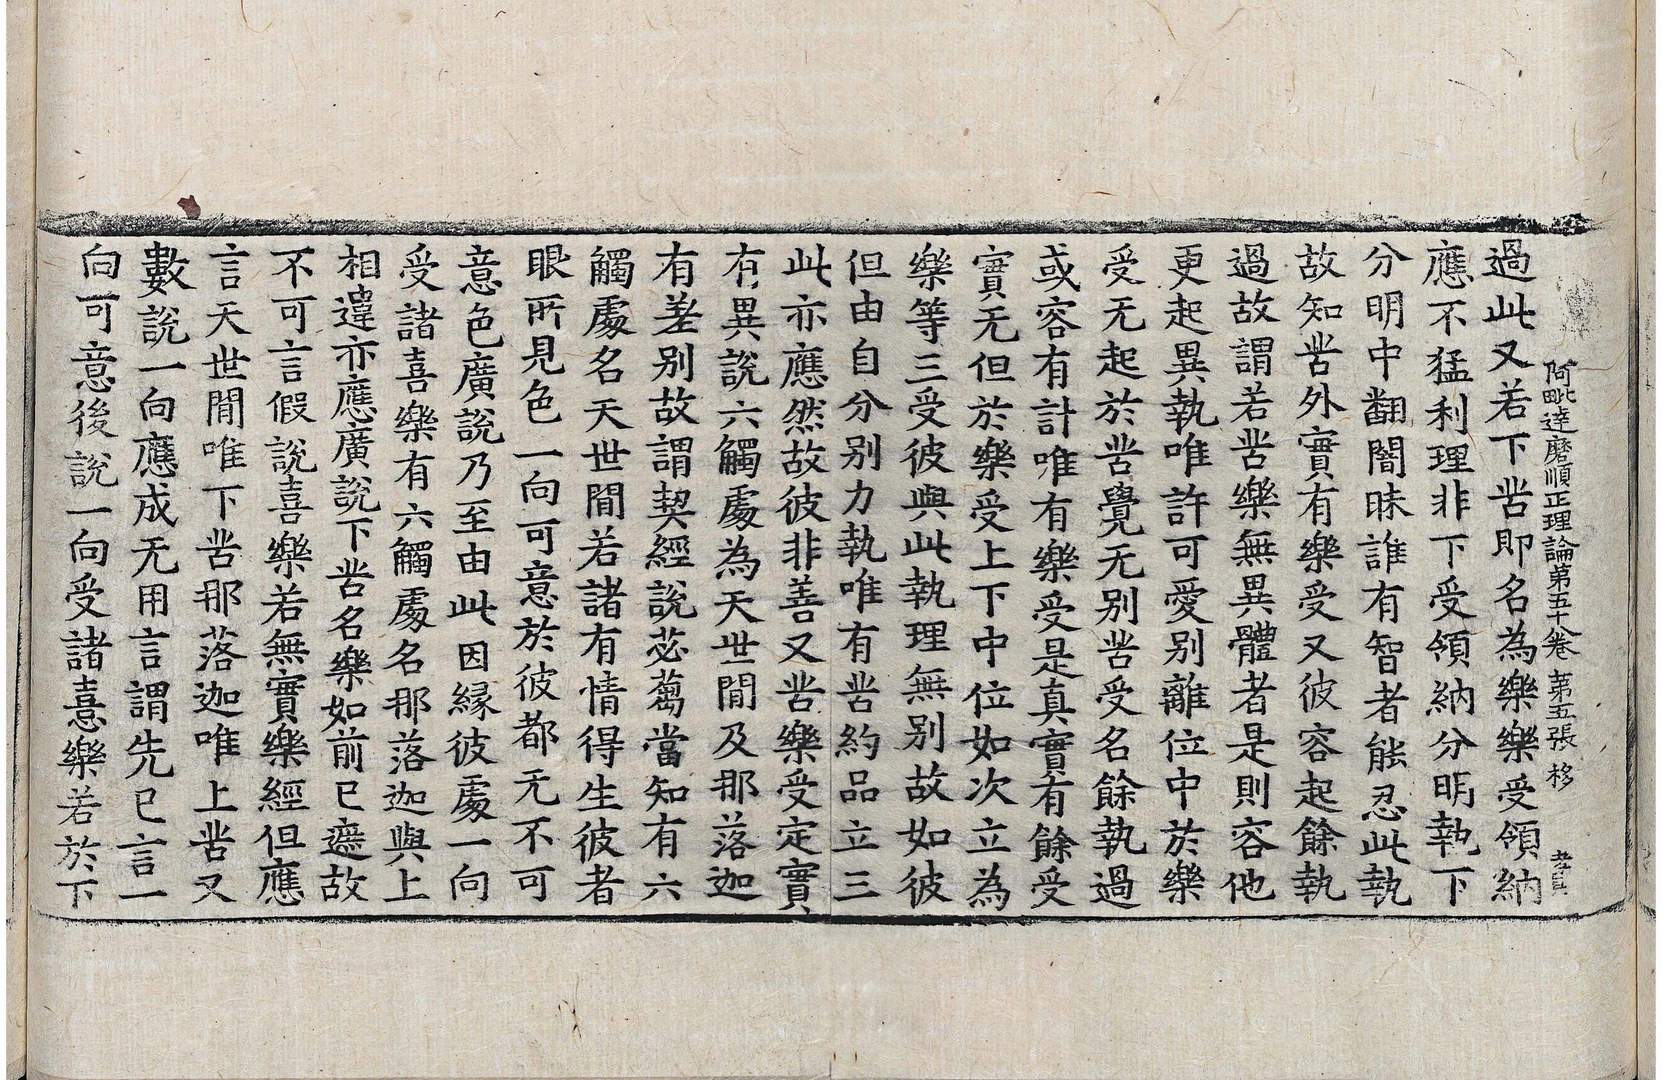 阿毗達磨順正理論第五十卷 第五張 移
過此又若下苦即名為樂樂受領納
應不猛利理非下受領納分明執下
分明中翻闇昧誰有智者能忍此執
故知苦外實有樂受又彼容起餘執
過故謂若苦樂無異體者是則容他
更起異執唯許可愛別離位中於樂
受无起於苦覺无別苦受名餘執過
或容有計唯有樂受是真實有餘受
實无但於樂受上下中位如次立為
樂等三受彼與此執理無別故如彼
但由自分別力執唯有苦約品立三
此亦應然故彼非善又苦樂受定實
有異說六觸處為天世間及那落迦
有差別故謂契經說苾蒭當知有六
觸處名天世間若諸有情得生彼者
眼所見色一向可意於彼都无不可
意色廣說乃至由此因緣彼處一向
受諸喜樂有六觸處名那落迦與上
相違亦應廣說下苦名樂如前已遮故
不可言假說喜樂若無實樂經但應
言天世間唯下苦那落迦唯上苦又
數說一向應成无用言謂先已言一
向可意後說一向受諸憙樂若於下